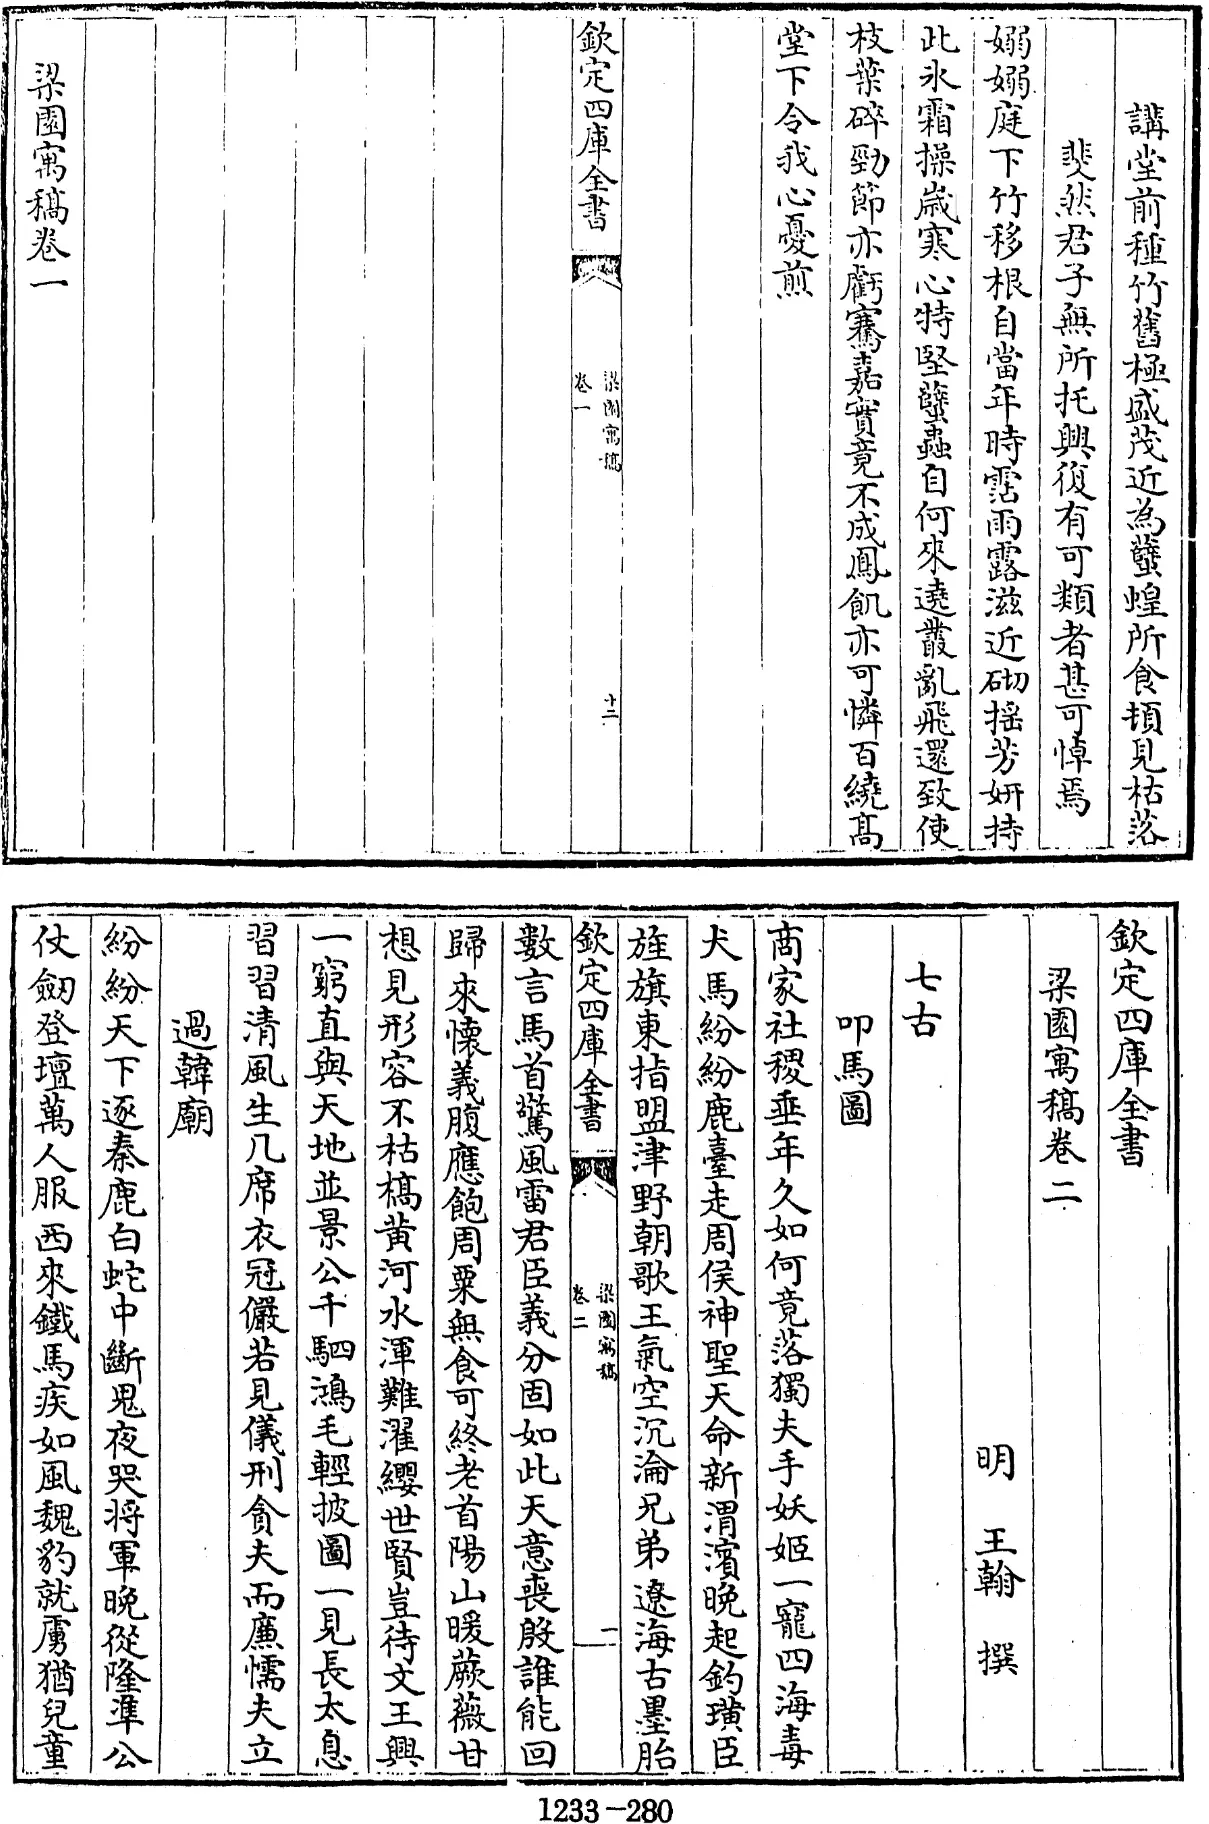 講堂前種竹舊極盛茂近為蠻蝗所食頓見枯落
斐然君子無所托興復有可類者甚可悼焉
嫋嫋庭下竹移根自當年時霑雨露滋近砌揺芳妍持
此氷霜操歳寒心特堅蠻蟲自何來遶叢亂飛還致使
枝葉碎勁節亦虧騫嘉實竟不成鳳飢亦可憐百繞髙
堂下令我心憂煎
欽定四庫全書
梁園寓稿
卷一
十二
梁園寓稿卷一
欽定四庫全書
梁園寓稿卷二
明 王翰 撰
七古
叩馬圖
商家社稷垂年久如何竟落獨夫手妖姬一寵四海毒
犬馬紛紛鹿臺走周侯神聖天命新渭濱晚起釣璜臣
旌旗東指盟津野朝歌王氣空沉淪兄弟遼海古墨胎
欽定四庫全書
梁園寓稿
卷二
一
數言馬首驚風雷君臣義分固如此天意喪殷誰能回
歸來懷義腹應飽周粟無食可終老首陽山暖蕨薇甘
想見形容不枯槁黄河水渾難濯纓世賢豈待文王興
一窮直與天地並景公千駟鴻毛輕披圖一見長太息
習習清風生几席衣冠儼若見儀刑貪夫而㢘懦夫立
過韓廟
紛紛天下逐秦鹿白蛇中斷鬼夜哭將軍晚從隆準公
仗劒登壇萬人服西來鐵馬疾如風魏豹就虜猶兒童
1233-280